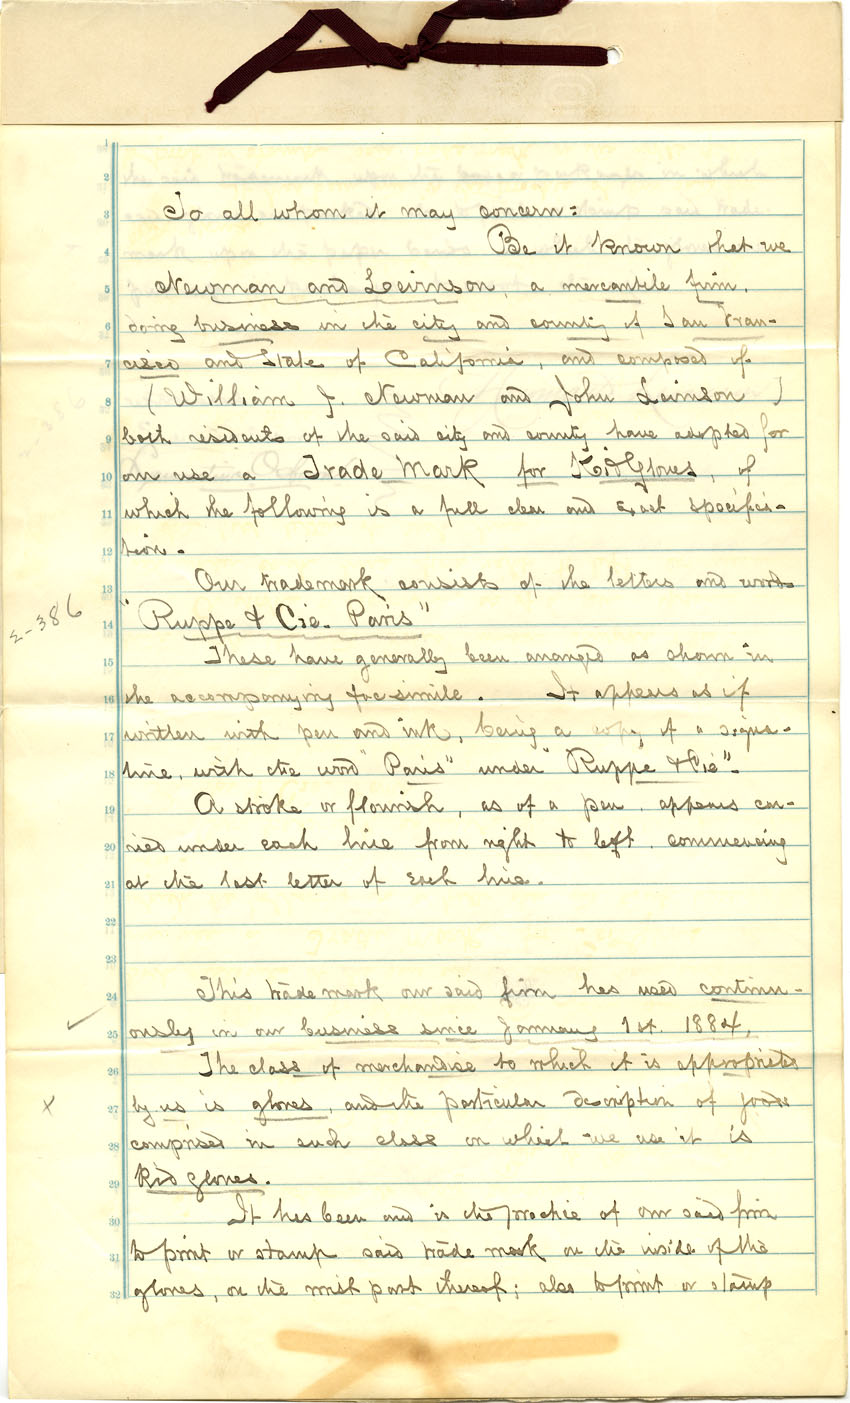 To all whom it may concern:
Be it known that we
Newman and Levinson, a mercantile firm,
doing business in the city and county of San Fran-
cisco and State of California, and composed of
(William J. Newman and John Levinson)
both residents of the said city and county have adopted for
our use a Trade Mark for Kid Gloves, of
which the following is a full clear and exact specifica-
tion.
Our trademark consists of the letters and words
"Ruppe & Cie. Paris"
E-386
These have generally been arranged as shown in
the accompanying fac-simile. It appears as if
written with pen and ink, being a copy of a signa-
ture, with the word "Paris" under "Ruppe & Cie".
A stroke or flourish, as of a pen, appears car-
ried under each line from right to left, commencing
at the last letter of each line.
This trade mark our said firm has used continu-
ously in our business since January 1st. 1884,
The class of merchandise to which it is appropriated
by us is gloves, and the particular description of goods
comprised in such class on which we use it is
Kid gloves.
It has been and is the practice of our said firm
to print or stamp said trade mark on the inside of the
gloves, on the wrist part thereof; also to print or stamp
1
2
3
4
5
6
7
8
9
10
11
12
13
14
15
16
17
18
19
20
21
22
23
24
25
26
27
28
29
30
31
32